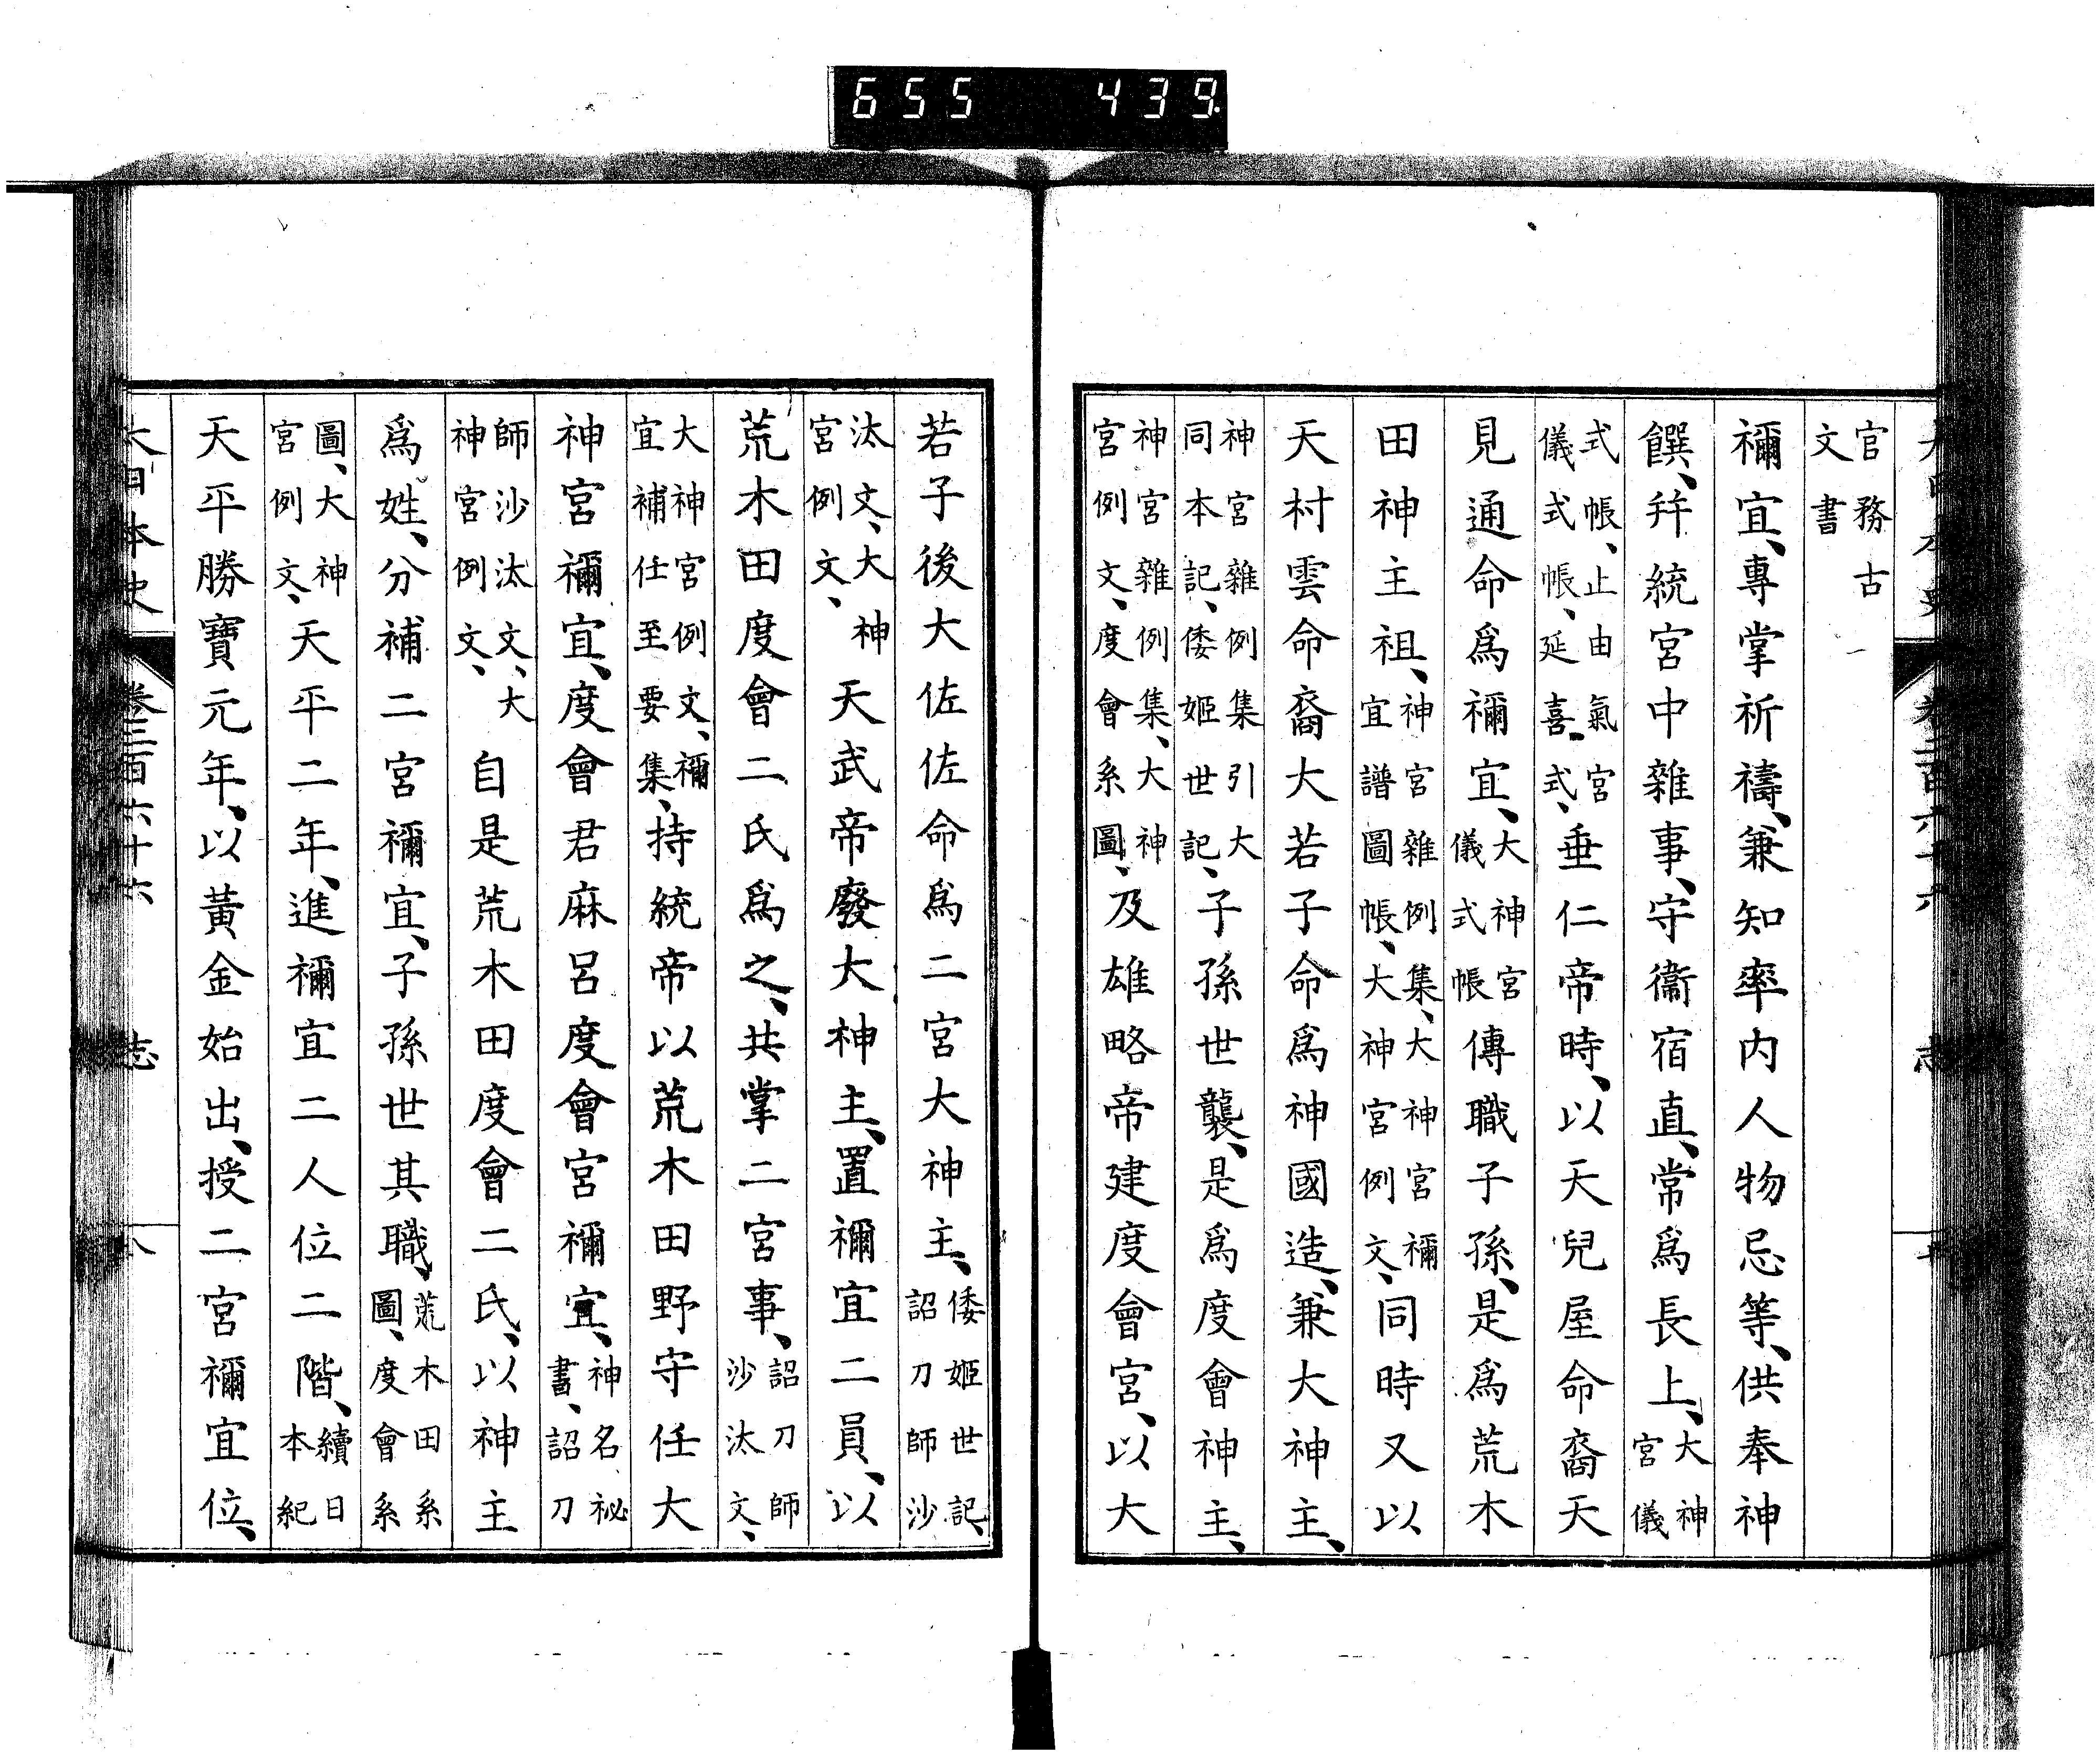 655 439
官務古文書
禰宜、專掌祈禱、兼知率內人物忌等、供奉神
饌、幷統宮中雜事、守衞宿直、常爲長上、大神宮儀
式帳、止由氣宮儀式帳、延喜式、垂仁帝時、以天兒屋命裔天
見通命爲禰宜、大神宮儀式帳傳職子孫、是爲荒木
田神主祖、神宮雜例集、大神宮禰宜譜圖帳、大神宮例文、同時又以
天村雲命裔大若子命爲神國造、兼大神主、
神宮雜例集引大同本記、倭姬世記、子孫世襲、是爲度會神主、
神宮雜例集、大神宮例文、度會系圖、及雄略帝建度會宮、以大
若子後大佐佐命爲二宮大神主、倭姬世記、詔刀師沙
汰文、大神宮例文、天武帝廢大神主、置禰宜二員、以
荒木田度會二氏爲之、共掌二宮事、詔刀師沙汰文、
大神宮例文、禰宜補任至要集、持統帝以荒木田野守任大
神宮禰宜、度會君麻呂度會宮禰宜、神名祕書、詔刀
師沙汰文、大神宮例文、自是荒木田度會二氏、以神主
爲姓、分補二宮禰宜、子孫世其職、荒木田系圖、度會系
圖、大神宮例文、天平二年、進禰宜二人位二階、續日本紀
天平勝寶元年、以黃金始出、授二宮禰宜位、
大日本史 卷三百六十六 志 八